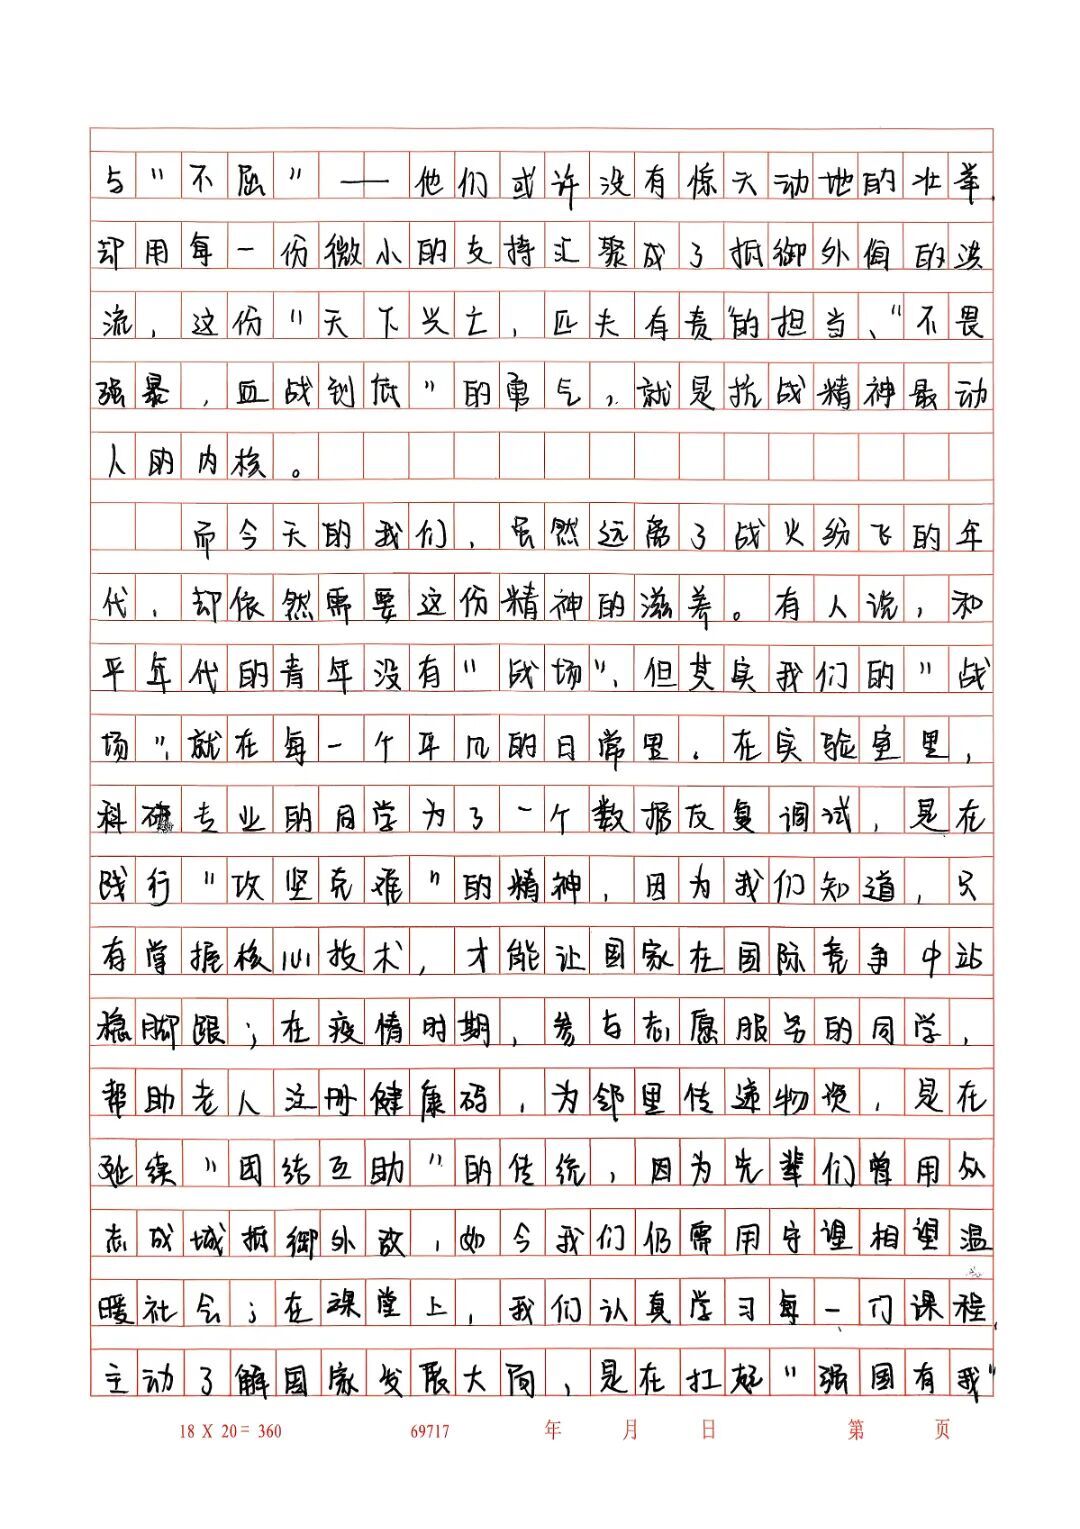 与“不屈”——他们或许没有惊天动地的壮举,
却用每一份微小的支持汇聚成了抵御外侮的洪
流，这份“天下兴亡，匹夫有责”的担当、“不畏
强暴，血战到底”的勇气，就是抗战精神最动
人的内核。
而今天的我们，虽然远离了战火纷飞的年
代，却依然需要这份精神的滋养。有人说，和
平年代的青年没有“战场”，但其实我们的“战
场”，就在每一个平凡的日常里。在实验室里，
科研专业的同学为了一个数据反复调试，是在
践行“攻坚克难”的精神，因为我们知道，只
有掌握核心技术，才能让国家在国际竞争中站
稳脚跟；在疫情时期，参与志愿服务的同学，
帮助老人注册健康码，为邻里传递物资，是在
延续“团结互助”的传统，因为先辈们曾用众
志成城抵御外敌，如今我们仍需用守望相望温
暖社会；在课堂上，我们认真学习每一门课程，
主动了解国家发展大局，是在扛起“强国有我”
18 X 20 = 360 69717 年 月 日 第 页